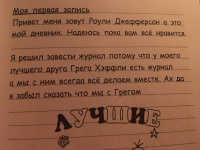 Моя первая запись
Привет меня зовут Роули Джефферсон а это
мой дневник. Надеюсь пока вам всё нравится.
Я решил завести журнал потому что у моего
лучшего друга Грега Хэффли есть журнал
а мы с ним всегда всё делаем вместе. Ах да
я забыл сказать что мы с Грегом
ЛУЧШИЕ